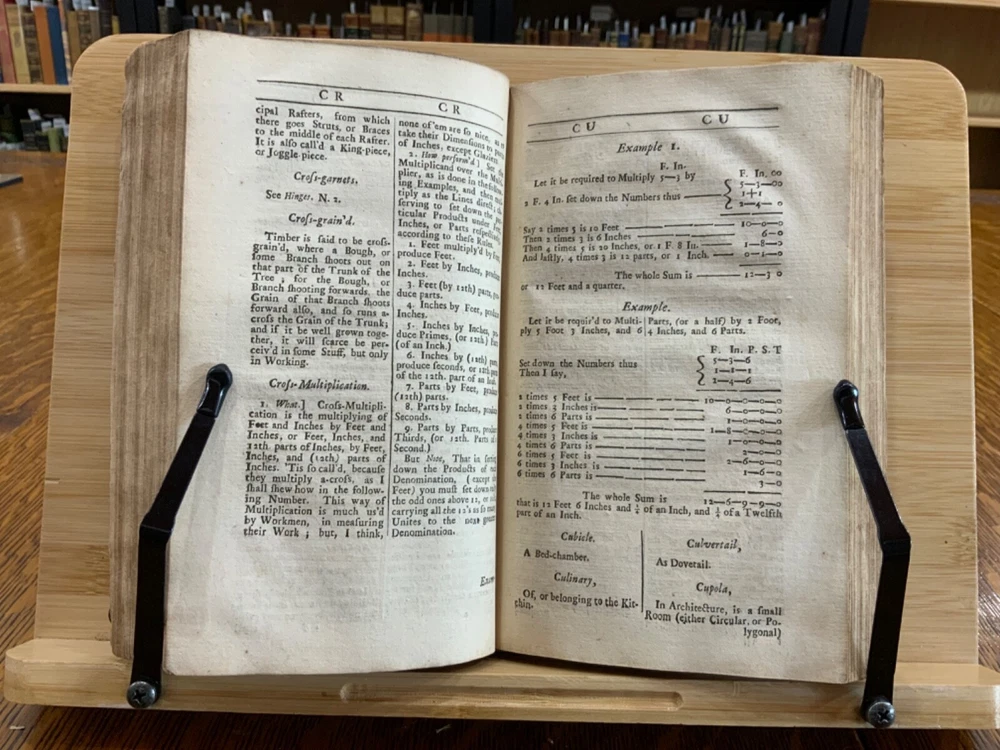 C R
cipal Rafters, from which
there goes Struts, or Braces
to the middle of each Rafter.
It is also call'd a King-piece,
or Joggle-piece.
Croſs-garnets.
See Hinges. N. 2.
Croſs-grain'd.
Timber is said to be croſs-
grain'd, where a Bough, or
ſome Branch ſhoots out on
that part of the Trunk of the
Tree; for the Bough, or
Branch ſhooting forwards, the
Grain of that Branch ſhoots
forward alſo, and ſo runs a-
croſs the Grain of the Trunk;
and if it be well grown toge-
ther, it will ſcarce be per-
ceiv'd in ſome Stuff, but only
in Working.
Croſs-Multiplication.
1. What.] Croſs-Multipli-
cation is the multiplying of
Feet and Inches by Feet and
Inches, or Feet, Inches, and
12th. parts of Inches, by Feet,
Inches, and (12th) parts of
Inches. 'Tis ſo call'd, becauſe
they multiply a-croſs, as I
ſhall ſhew how in the follow-
ing Number. This way of
Multiplication is much us'd
by Workmen, in meaſuring
their Work; but, I think,
C R
none of 'em are ſo nice, as to
take their Dimenſions to
of Inches, except Glaziers.
2. How perform'd.] Set the
Multiplicand over the
plier, as is done in the
ing Examples, and then
tiply as the Lines direct;
ſerving to ſet down the
ticular Products under
Inches, or Parts
according to theſe Rules.
1. Feet multiply'd by
produce Feet.
2. Feet by Inches,
Inches.
3. Feet (by 12th) parts,
duce parts.
4. Inches by Feet,
Inches.
5. Inches by Inches,
duce Primes, (or 12th)
(of an Inch.)
6. Inches by (12th)
produce ſeconds, or 12th
of the 12th. part of an Inch.
7. Parts by Feet,
(12th) parts.
8. Parts by Inches,
Seconds.
9. Parts by Parts,
Thirds, (or 12th. Parts
Second.)
But Note, That in
down the Products of
Denomination, (except
Feet) you muſt ſet down
the odd ones above 12, or
carrying all the 12's as ſo many
Unites to the next
Denomination.
C U C U
Example 1.
F. In.
Let it be required to Multiply 5—3 by
2 F. 4 In. ſet down the Numbers thus
F. In. oo
5—3—oo
1+1
2—4—o
Say 2 times 5 is 10 Feet 10—0—0
Then 2 times 3 is 6 Inches 6—0
Then 4 times 5 is 20 Inches, or 1 F. 8 In. 1—8—0
And laſtly, 4 times 3 is 12 parts, or 1 Inch. 0—1—0
The whole Sum is 12—3 0
or 12 Feet and a quarter.
Example.
Let it be requir'd to Multi-
ply 5 Foot 3 Inches, and 6
Parts, (or a half) by 2 Foot,
4 Inches, and 6 Parts.
F. In. P. S. T
Set down the Numbers thus 5—3—6
Then I ſay,
2—4—6
2 times 5 Feet is 10—0—0—0—0
2 times 3 Inches is 6—0—0—0
2 times 6 Parts is 1—0—0—0
4 times 5 Feet is 1—8—0—0—0
4 times 3 Inches is 1—0—0—0
4 times 6 Parts is
6 times 5 Feet is 2—6—0—0
6 times 3 Inches is 1—6—0
6 times 6 Parts is 3—0
The whole Sum is 12—6—9—9—0
that is 12 Feet 6 Inches and of an Inch, and of a Twelfth
part of an Inch.
Cubicle.
A Bed-chamber.
Culinary,
Of, or belonging to the Kit-
chin.
Culvertail,
As Dovetail.
Cupola,
In Architecture, is a ſmall
Room (either Circular, or Po-
lygonal)